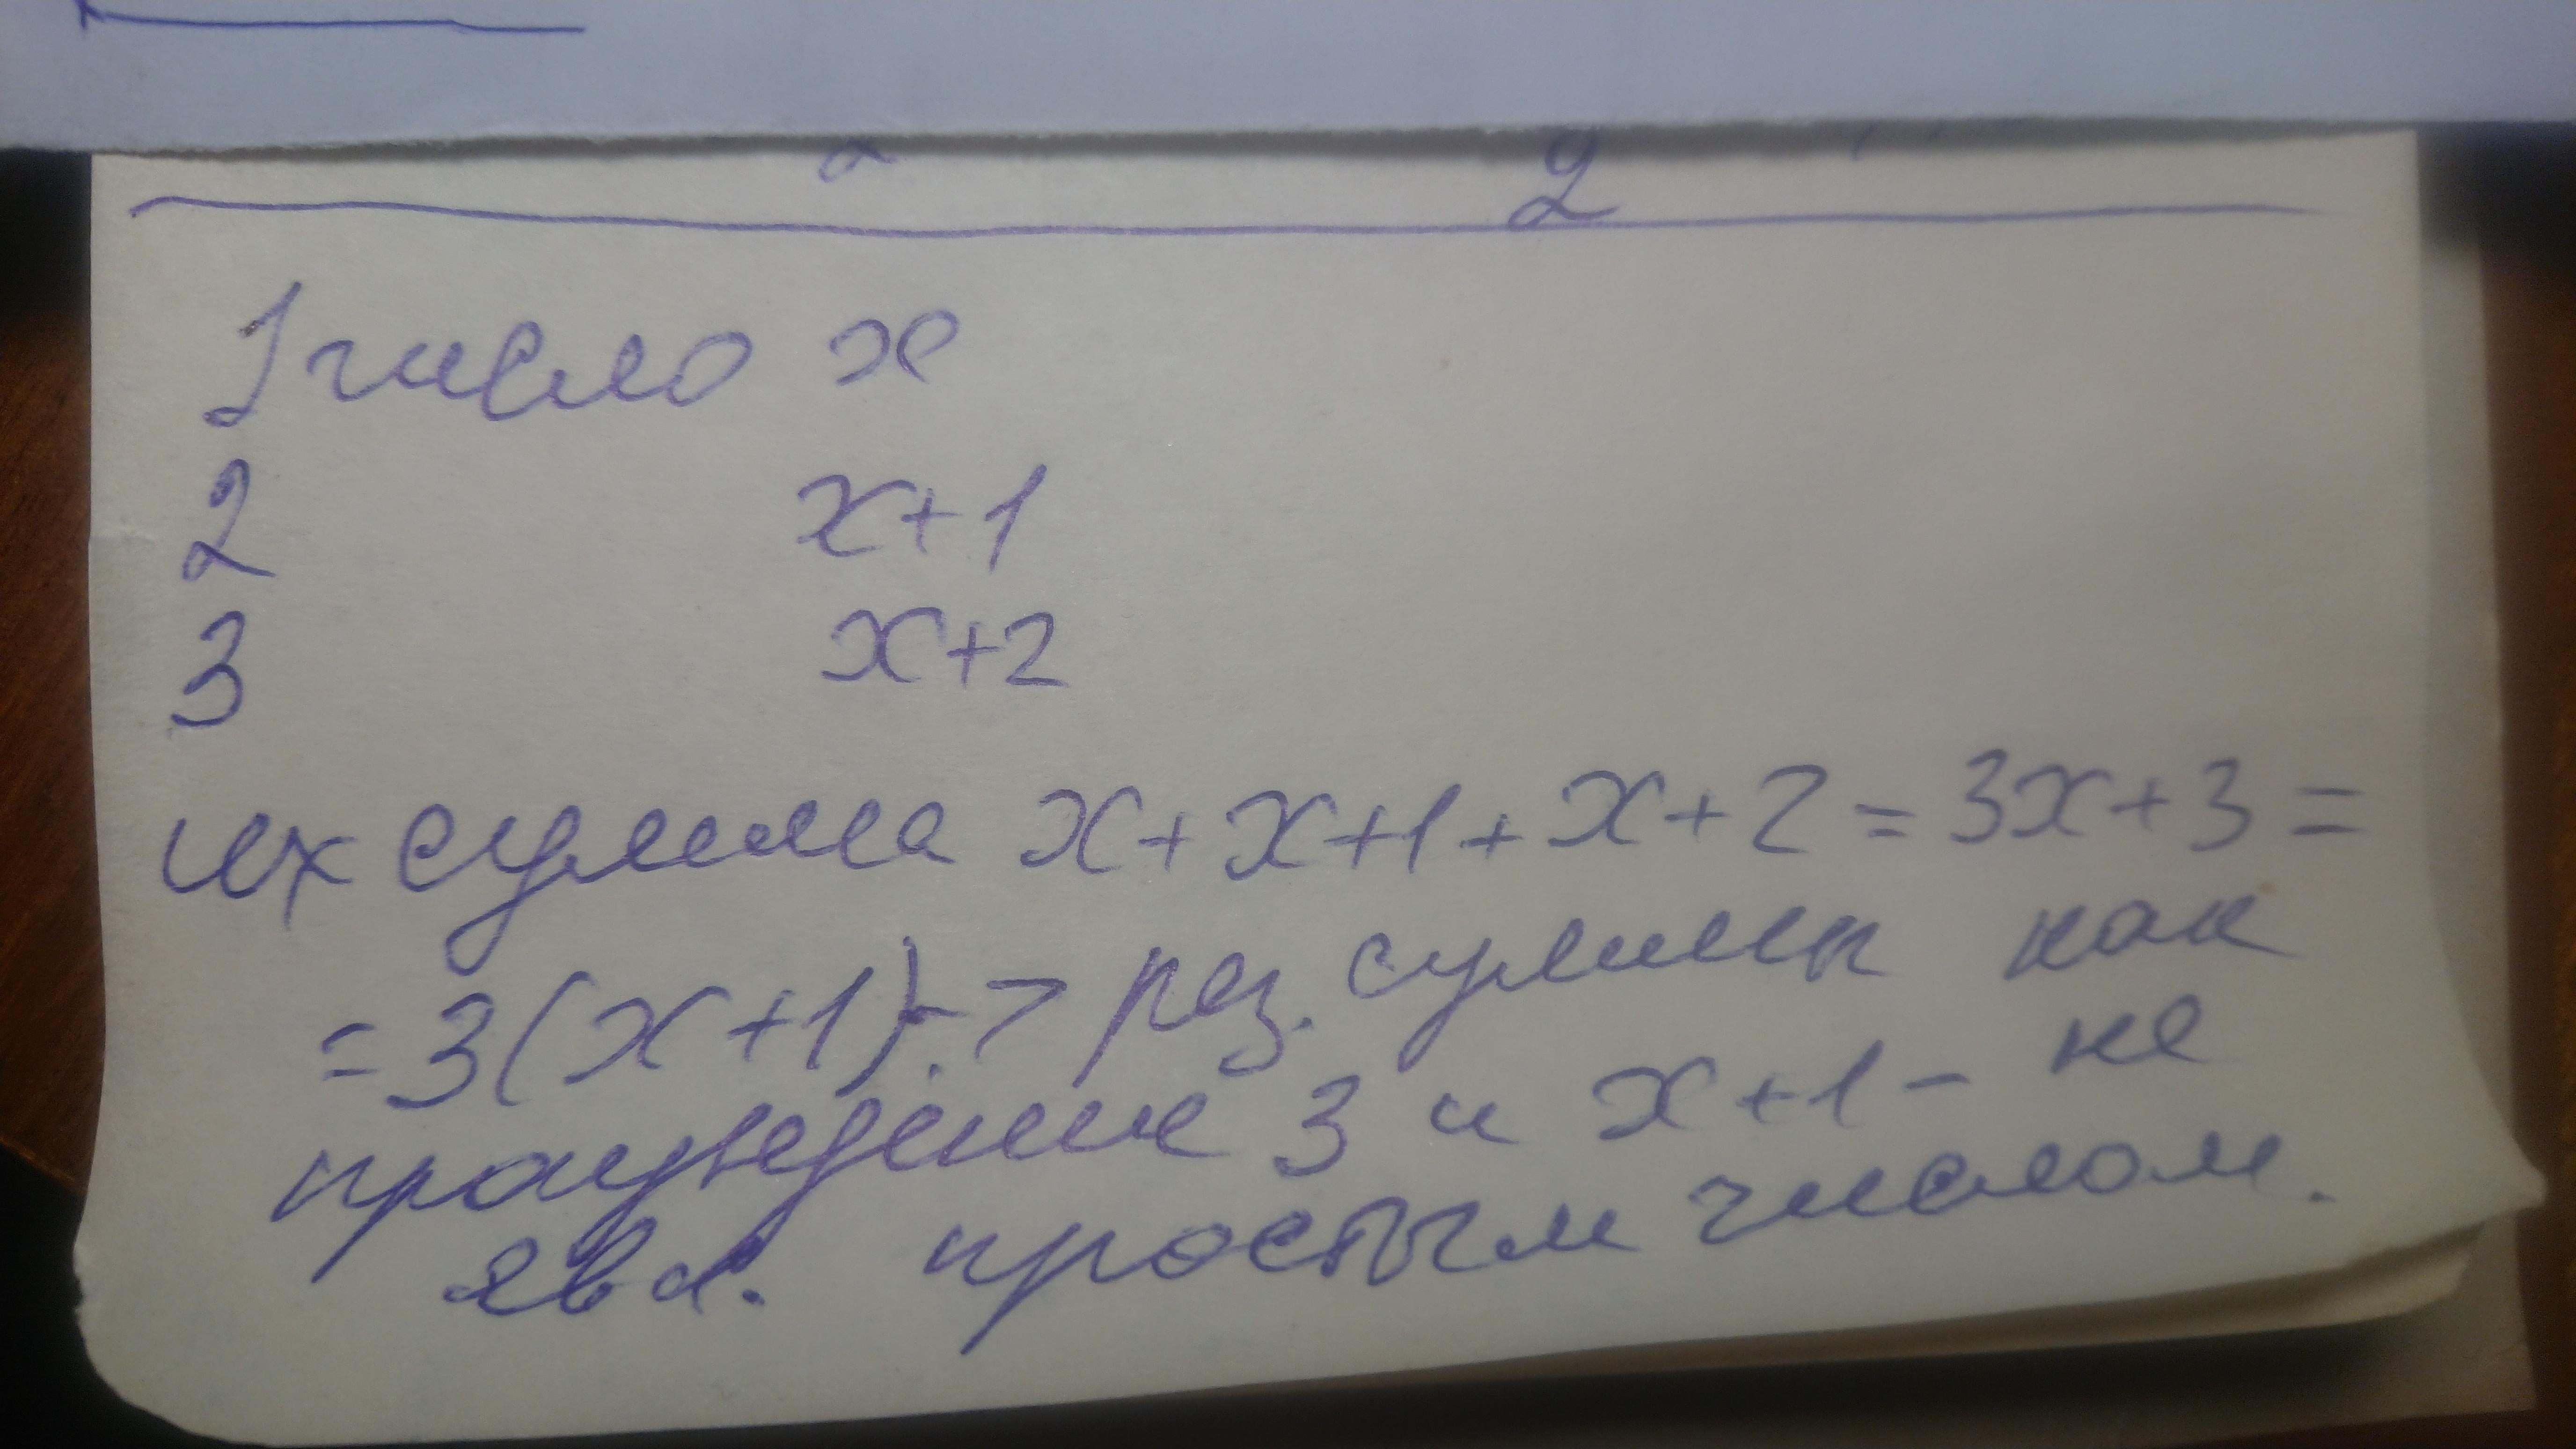 2
1 число x
2 x+1
3 x+2
их сумма x+x+1+x+2=3x+3=
=3(x+1) -> рез. суммы как
произведение 3 и x+1 - не
явл. простым числом.